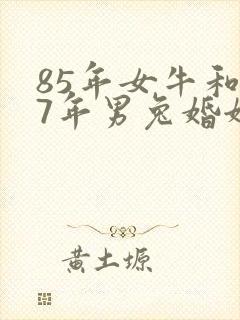 85年女牛和
7年男兔婚姻
黄土塬